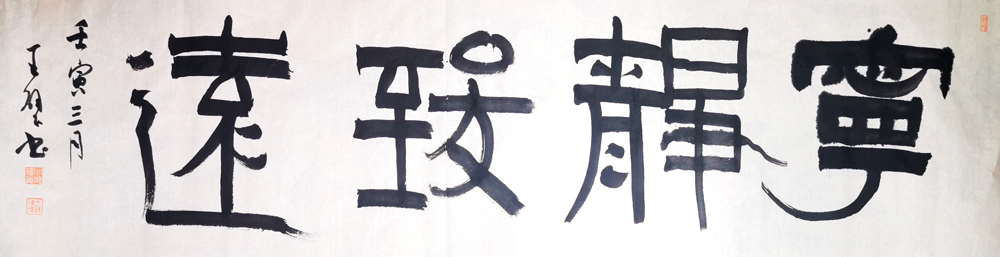 寧靜致遠
壬寅三月
王健书